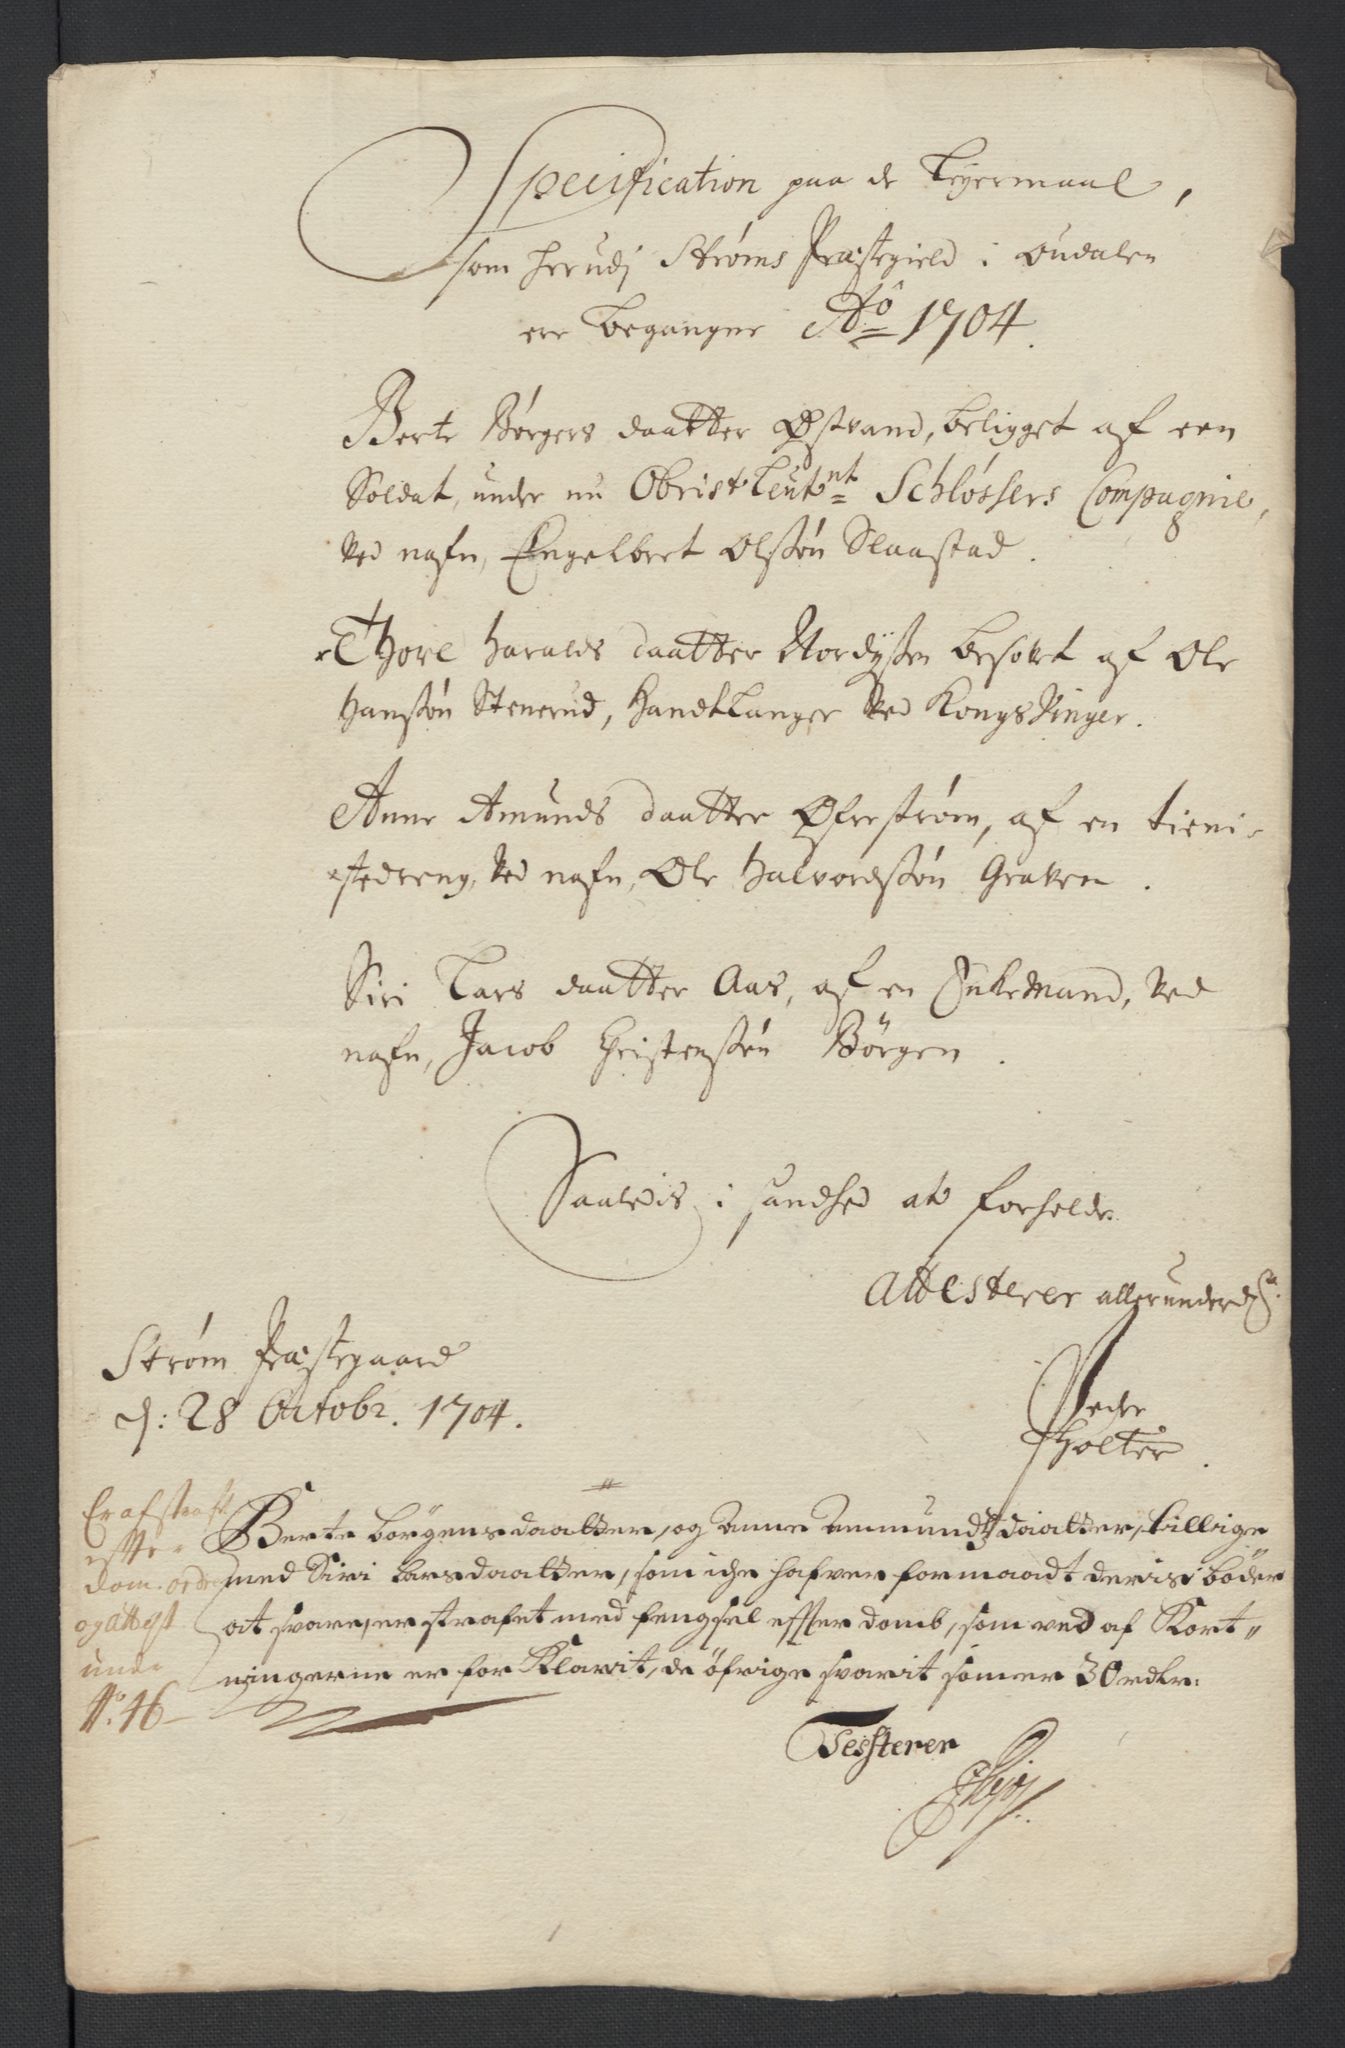 Specification paa de Leyermaal,
som herudj Strøms Præstegield i Oudalen
ere begangne Aô 1704.
Berte Børgers daatter Østvand, beligget af een
Soldat, under nu Obrist Leutnt Schløssers Compagnie,
ved nafn, Engelbret Olssøn Slaastad.
Thore Haralds daatter Nordÿsen besovet af Ole
Hanssøn Stenerud, Handtlanger ved KongsVinger.
Anne Amunds daatter Øfrestrøm, af en tieni-
stedreng, ved nafn, Ole Halvordssøn Graven.
Siri Lars daatter Aas, af en Enkemand, ved
nafn, Jacob Christenssøn Börgen.
Saaledis i sandhed at forholde
Attesterer allerunderd
Strøm Præstegaard
d: 28 Octobr. 1704.
Peder
Holter.
Er afstraft
effter
dom. ordre
og attest
under
No. 46
Berte börgensdaatter, og Anne Ammundzdaatter, tillige
med Siri larsdaatter, som iche hafver formaadt deris böder
at svare, er strafet med fengsel effter domb, som ved af Kort"
ningerne er for Klarit, de öfrige svarit som er 30 rdlr:
Tessterer